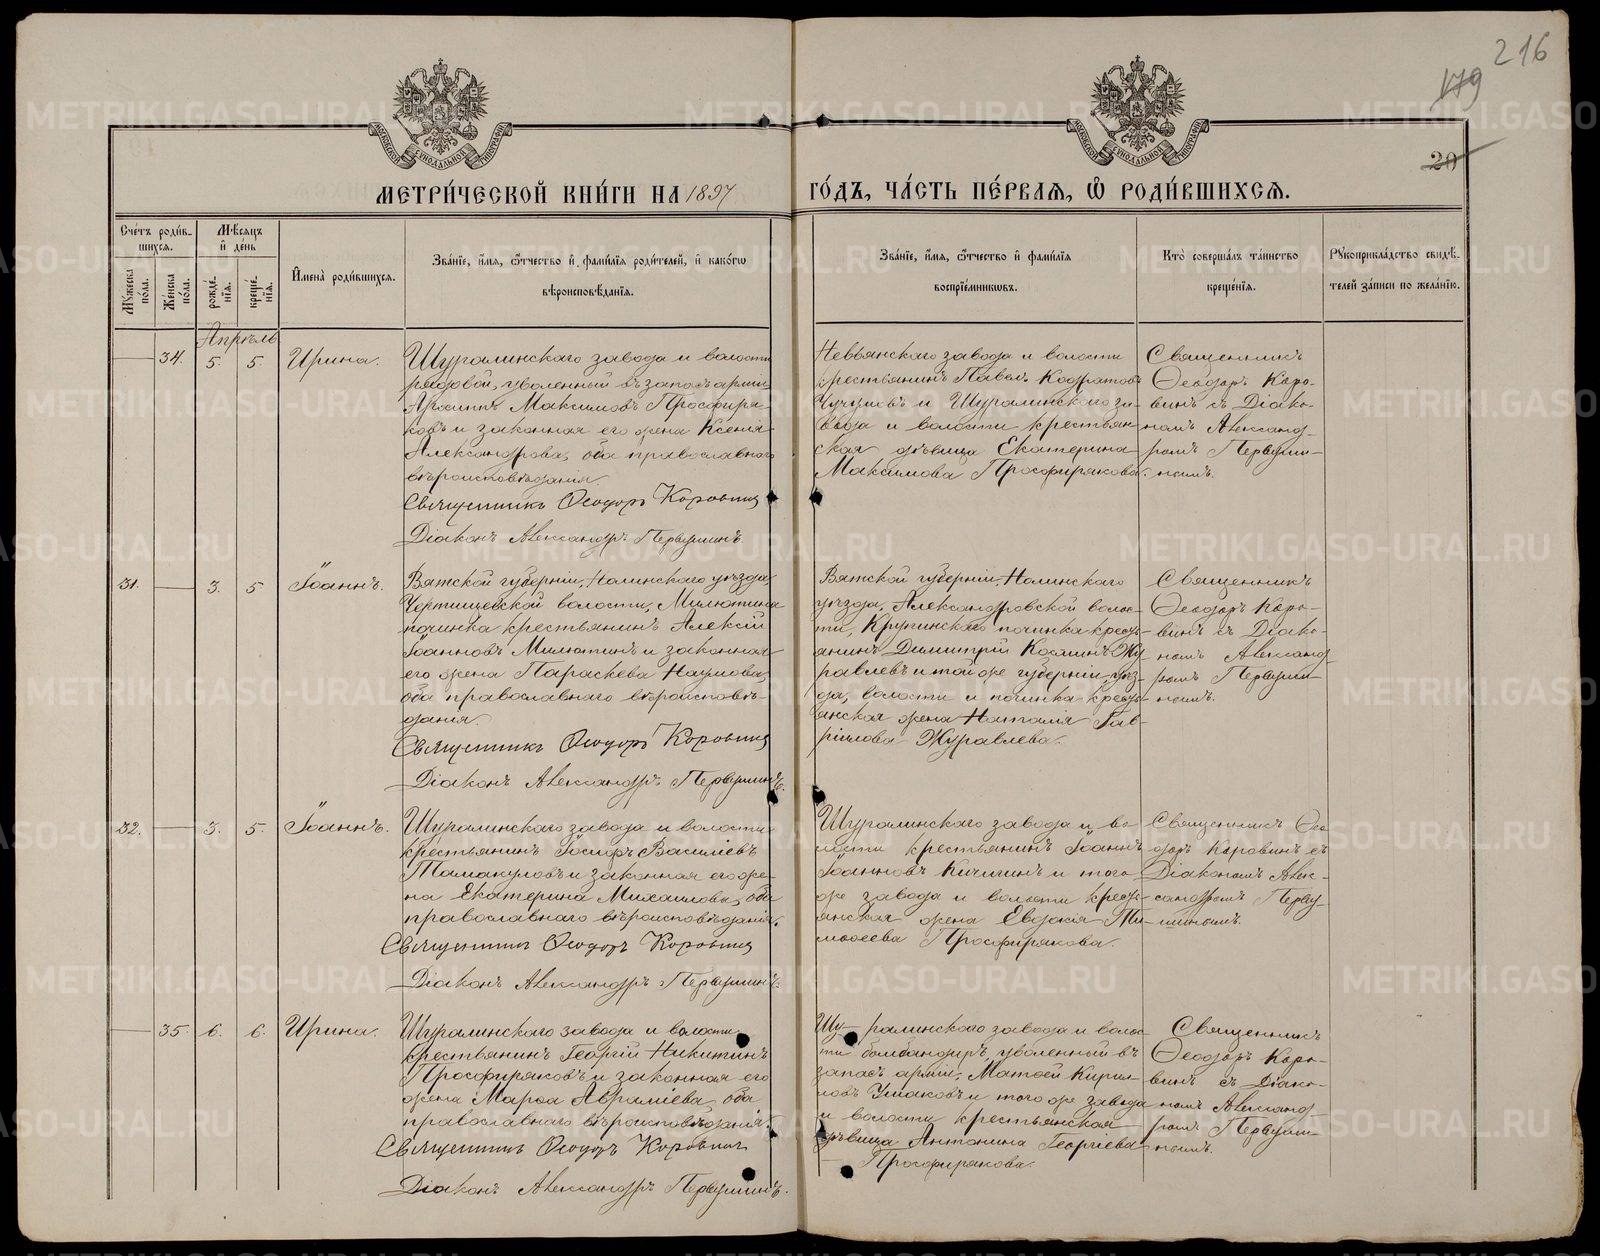 216
179
20
МОСКОВСКОЙ СѴНОДАЛЬНОЙ ТИПОГРАФІИ
МОСКОВСКОЙ СѴНОДАЛЬНОЙ ТИПОГРАФІИ
МЕТРИ́ЧЕСКОЙ КНИ́ГИ НА 1897
ГО́ДЪ, ЧА́СТЬ ПЕ́РВАѦ, Ѽ РОДИ́ВШИХСѦ.
Сче́тъ роди́в-
шихсѧ.
Мѣ́сѧцъ
и҆ де́нь
Мꙋжеска
по́ла.
Же́нска
по́ла.
рожде́-
нїѧ.
креще́-
нїѧ.
И҆мена̀ роди́вшихсѧ.
Зва́нїе, и҆́мѧ, ѻ҆́тчество и҆ фами́лїѧ роди́телей, и҆ како́гѡ
вѣроисповѣ́данїѧ.
Зва́нїе, и҆́мѧ, ѻ҆́тчество и҆ фами́лїѧ
воспрїе́мникѡвъ.
Кто̀ соверша́лъ та́инство
креще́нїѧ.
Рꙋкоприкла́дство свидѣ́-
телей за́писи по жела́нїю.
Апрѣль
34. 5. 5. Ирина.
Шуралинскаго завода и волости
рядовой, уволенный въ запасъ арміи,
Максимовъ Просфиря-
ковъ и законная его жена Ксенія
Александрова, оба православнаго
вѣроисповѣданія.
Священникъ Ѳеодоръ Коровинъ
Діаконъ Александръ Первушинъ
Невьянскаго завода и волости
крестьянинъ Павелъ Кодратовъ
и Шуралинскаго за-
вода и волости крестьян-
ская дѣвица Екатерина
Максимова Просфирякова.
Священникъ
Ѳеодоръ Коро-
винъ съ Діако-
номъ Александ-
ромъ Первуши-
нымъ.
31. 3. 5 Іоаннъ.
Вятской губерніи, Нолинскаго уѣзда,
волости, Милютина
починка крестьянинъ Алексій
Іоанновъ Милютинъ и законная
его жена Параскева Наумова,
оба православнаго вѣроисповѣ-
данія.
Священникъ Ѳеодоръ Коровинъ
Діаконъ Александръ Первушинъ.
Вятской губерніи, Нолинскаго
уѣзда, Александровской волос-
ти, Крупинскаго починка кресть-
янинъ Димитрій Косминъ Жу-
равлевъ и той же губерніи, уѣз-
да, волости и починка кресть-
янская жена Наталія Гав-
ріилова Журавлева.
Священникъ
Ѳеодоръ Коро-
винъ съ Діако-
номъ Александ-
ромъ Первуши-
нымъ.
32. 3. 5. Іоаннъ.
Шуралинскаго завода и волости
крестьянинъ Іосифъ Василіевъ
и законная его же-
на Екатерина Михаилова, оба
православнаго вѣроисповѣданія.
Священникъ Ѳеодоръ Коровинъ
Діаконъ Александръ Первушинъ.
Шуралинскаго завода и во-
лости крестьянинъ Іоаннъ
Іоанновъ Кичигинъ и того
же завода и волости кресть-
янская жена Евдокія Ти-
моѳеева Просфирякова.
Священникъ Ѳео-
доръ Коровинъ съ
Діакономъ Алек-
сандромъ Перву-
шинымъ.
35. 6. 6. Ирина.
Шуралинскаго завода и волости
крестьянинъ Георгій Никитинъ
Просфиряковъ и законная его
жена Марѳа Авраміева, оба
православнаго вѣроисповѣданія.
Священникъ Ѳеодоръ Коровинъ
Діаконъ Александръ Первушинъ.
Шу-ралинскаго завода и волос-
ти бомбандиръ, уволенный въ
запасъ арміи, Матѳей Кирил-
ловъ Ушаковъ и того же завода
и волости крестьянская
дѣвица Антонина Георгіева
Просфирякова.
Священникъ
Ѳеодоръ Коро-
винъ съ Діако-
номъ Александ-
ромъ Первуши-
нымъ.
METRIKI.GASO-URAL.RU